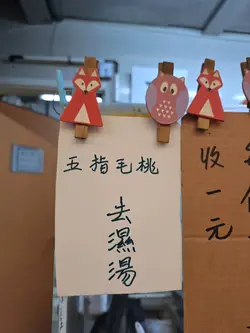 五指毛桃
去濕湯
收一元